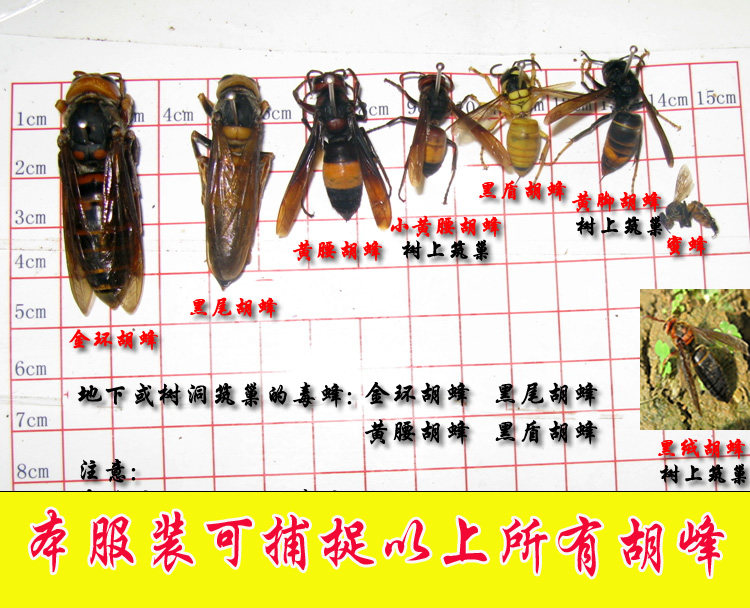 1cm 4cm 14cm 15cm
2cm
3cm
4cm
5cm
6cm
7cm
8cm
金环胡蜂
黑尾胡蜂
黄腰胡蜂
小黄腰胡蜂
树上筑巢
黑盾胡蜂
黄脚胡蜂
树上筑巢
蜜蜂
黑绒胡蜂
树上筑巢
地下或树洞筑巢的毒蜂: 金环胡蜂 黑尾胡蜂
黄腰胡蜂 黑盾胡蜂
注意:
本服装可捕捉以上所有胡峰